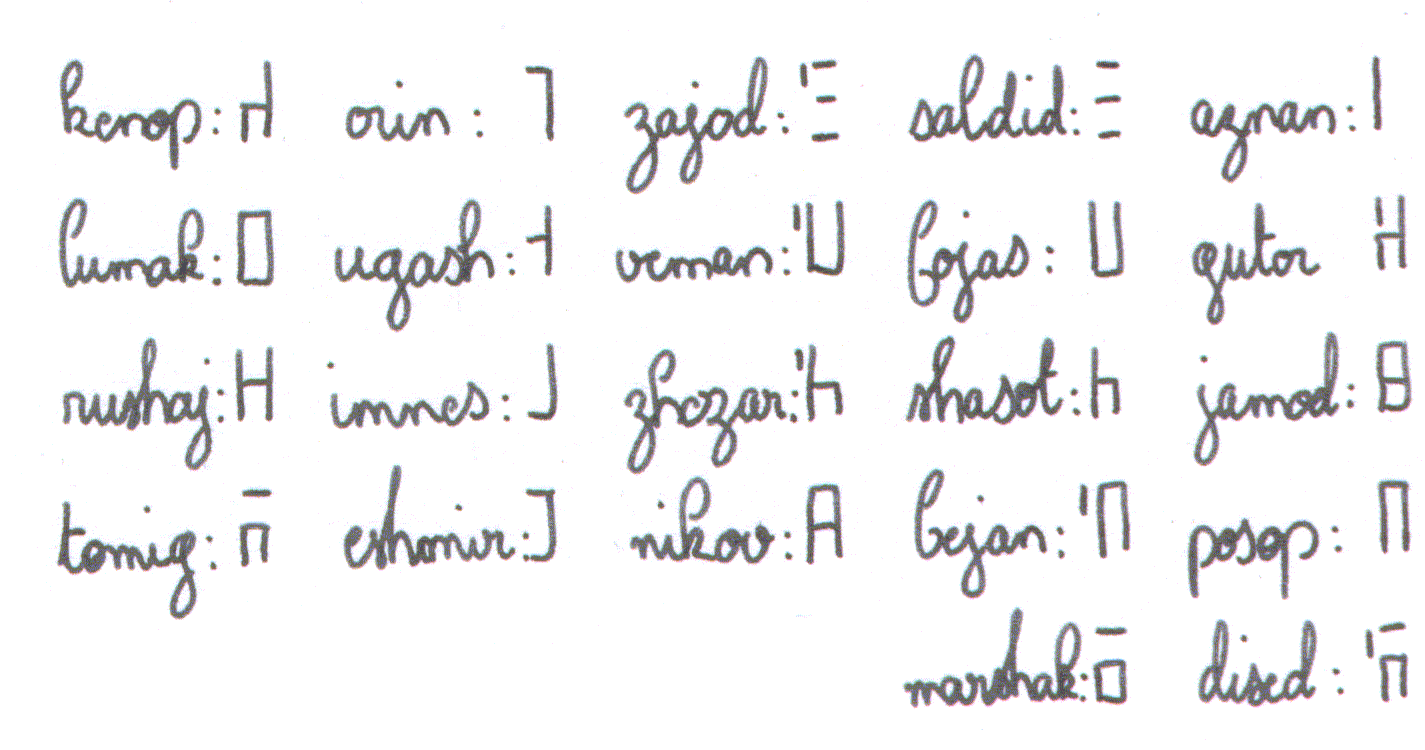 kenop: orin: zajod: saldid: aznan:
lumak: ugash: veman: fojas: gutor
rushaj: imnes: zhezar: shasot: jamod:
tomig: eshmir: nikov: bejan: posop:
marshak: dised: